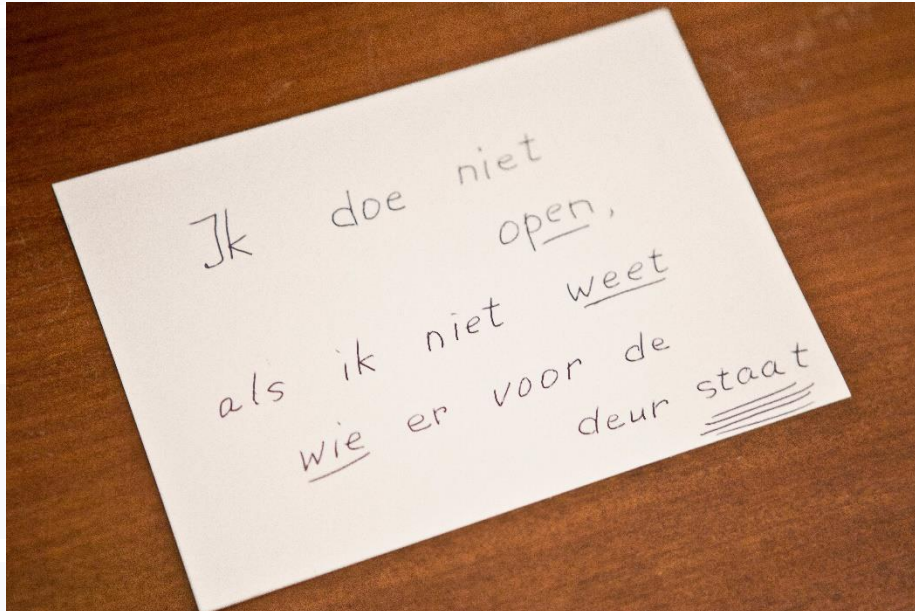 Ik doe niet
open,
als ik niet weet
wie er voor de
deur staat